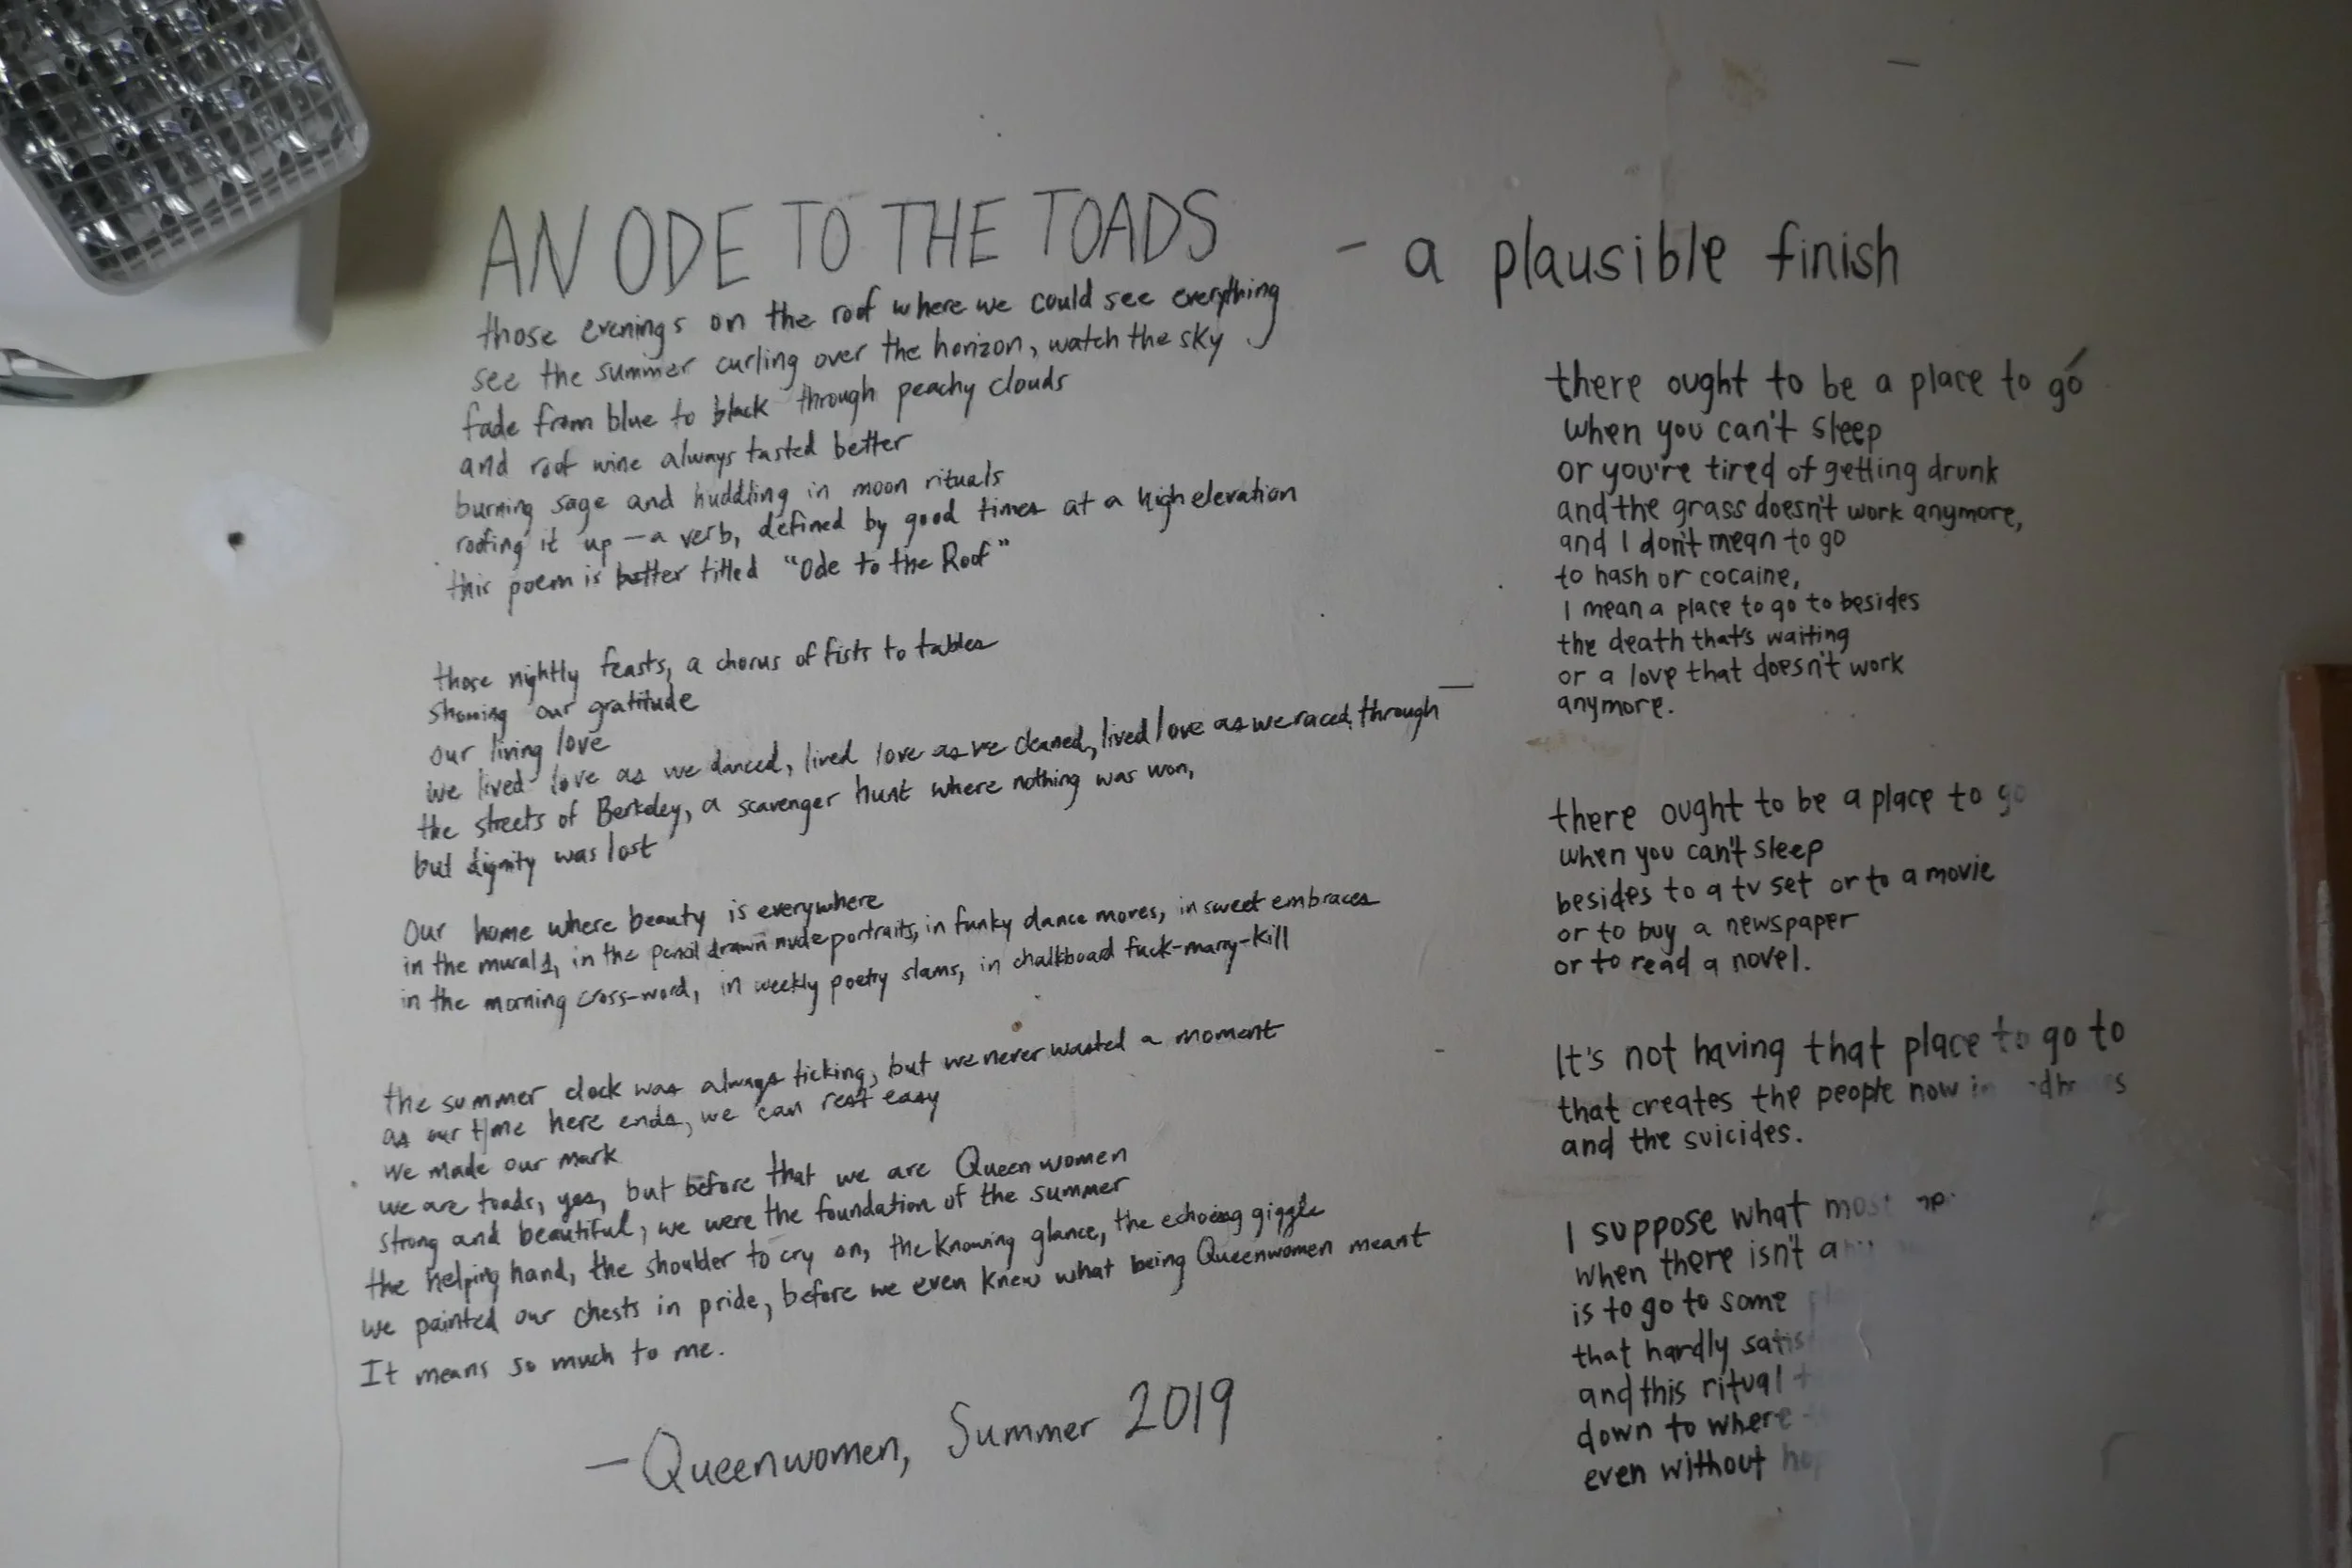 AN ODE TO THE TOADS
those evenings on the roof where we could see everything
see the summer curling over the horizon, watch the sky
fade from blue to black through peachy clouds
and roof wine always tasted better
burning sage and huddling in moon rituals
roofing it up — a verb, defined by good times at a high elevation
this poem is better titled "Ode to the Roof"
those nightly feasts, a chorus of fists to tables
showing our gratitude
our living love
we lived love as we danced, lived love as we cleaned, lived love as we raced through
the streets of Berkeley, a scavenger hunt where nothing was won,
but dignity was lost
Our home where beauty is everywhere
in the murals, in the pencil drawn nude portraits, in funky dance moves, in sweet embraces
in the morning cross-word, in weekly poetry slams, in chalkboard fuck-marry-kill
the summer clock was always ticking, but we never wasted a moment
as our time here ends, we can rest easy
we made our mark
we are toads, yes, but before that we are Queenwomen
strong and beautiful, we were the foundation of the summer
the helping hand, the shoulder to cry on, the knowing glance, the echoing giggle
we painted our chests in pride, before we even knew what being Queenwomen meant
It means so much to me.
— Queenwomen, Summer 2019
- a plausible finish
there ought to be a place to go
when you can't sleep
or you're tired of getting drunk
and the grass doesn't work anymore,
and I don't mean to go
to hash or cocaine,
I mean a place to go to besides
the death that's waiting
or a love that doesn't work
anymore.
there ought to be a place to go
when you can't sleep
besides to a tv set or to a movie
or to buy a newspaper
or to read a novel.
It's not having that place to go to
that creates the people now in
and the suicides.
I suppose what most
when there isn't a
is to go to some
that hardly
and this ritual
down to where
even without